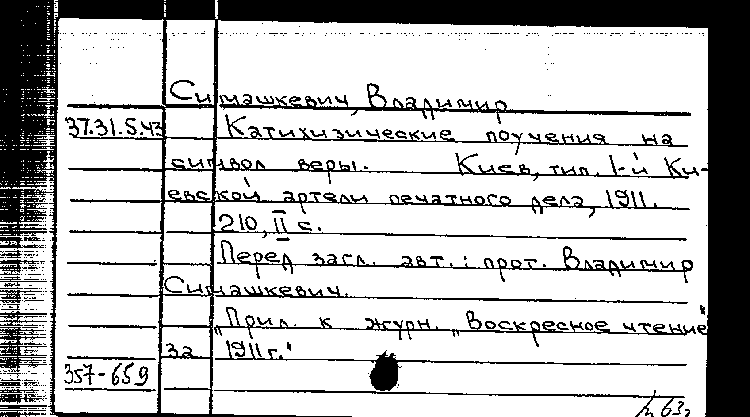 Симашкевич, Владимир
37.31.5.43 Катихизические поучения на
символ веры. Киев, тип. 1-й Ки-
евской артели печатного дела, 1911.
210, II с.
Перед загл. авт.: прот. Владимир
Симашкевич.
„Прил. к журн. „Воскресное чтение"
за 1911 г."
357-659